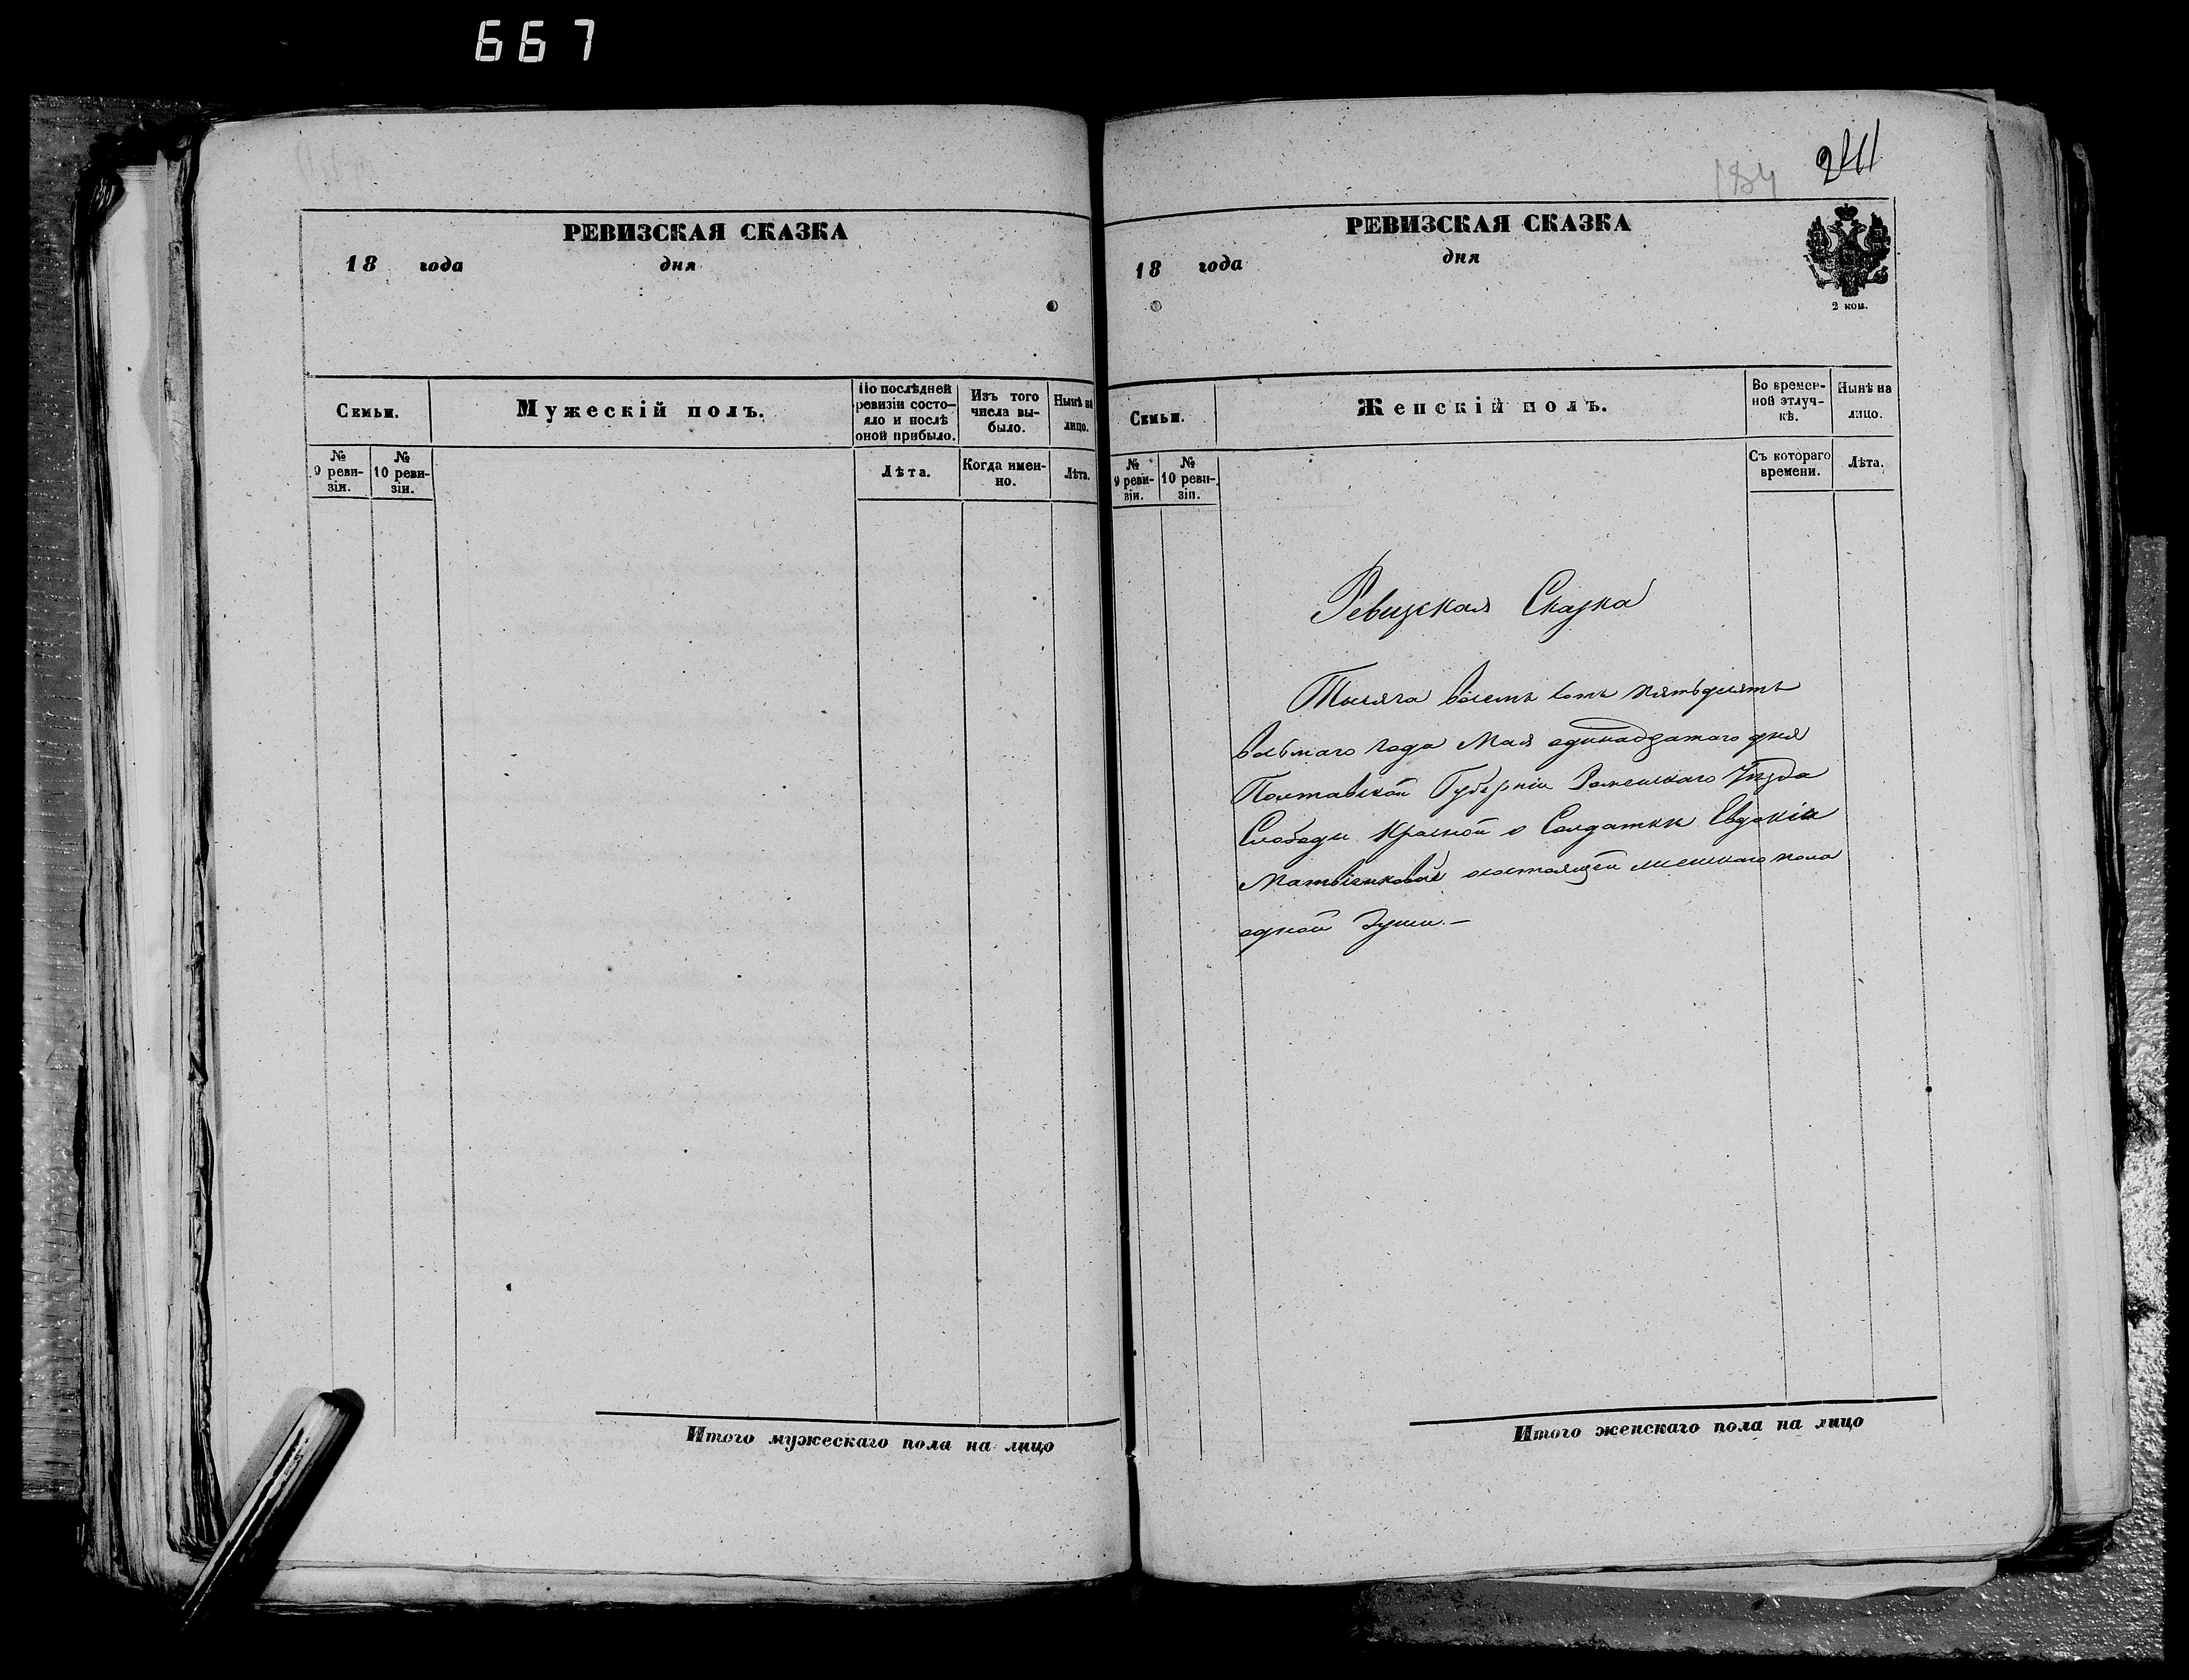 667
РЕВИЗСКАЯ СКАЗКА
18 года дня
Семьи.
Мужескій полъ.
По послѣдней ревизіи состо-
яло и послѣ оной прибыло.
Изъ того числа вы-
было.
Нынѣ на лицо.
№ 9 реви-
зіи.
№ 10 реви-
зіи.
Лѣта.
Когда имен-
но.
Лѣта.
Итого мужескаго пола на лицо
184
241
РЕВИЗСКАЯ СКАЗКА
18 года дня
2 коп.
Семьи.
Женскій полъ.
Во времен-
ной отлуч-
кѣ.
Нынѣ на лицо.
№ 9 реви-
зіи.
№ 10 реви-
зіи.
Съ котораго времени.
Лѣта.
Ревизская Сказка
Тысяча восемь сотъ пятьдесятъ
восьмаго года Мая одинадзатаго дня
Полтавской Губерніи Роменскаго Уѣзда
Слободы Красной о Солдаткѣ Евдокіи
Матвіенковой состоящей женскаго пола
одной души.—
Итого женскаго пола на лицо